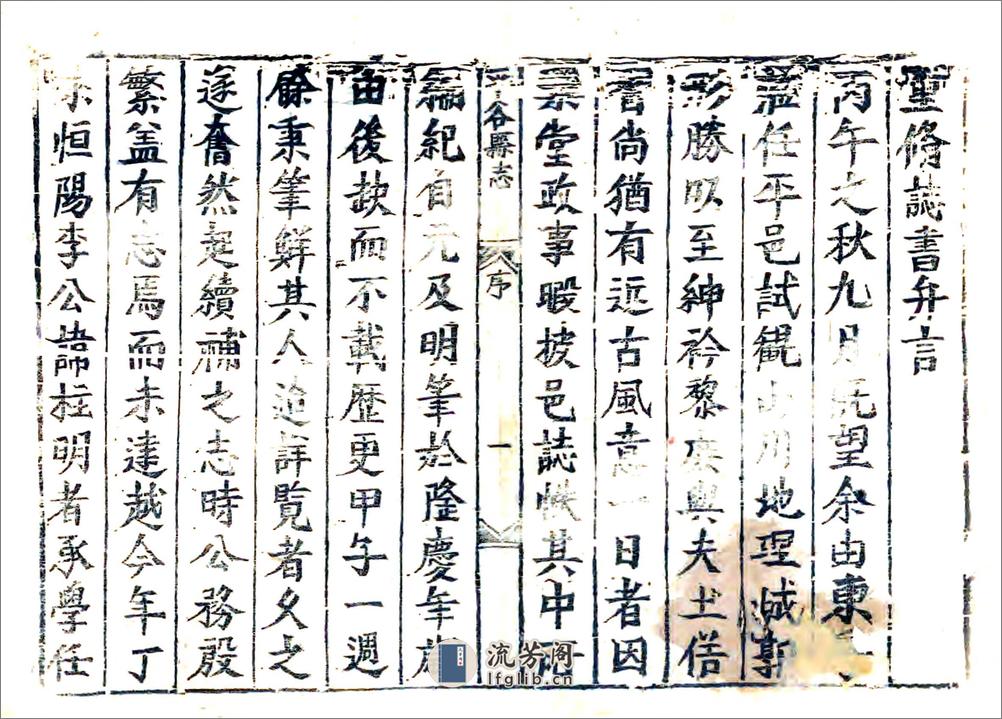 重脩誌書弁言
丙午之秋九月既望余由東
蒞任平邑試觀山川地理城郭
形勝以至紳衿黎庶與夫土俗
言尚猶有近古風意一日者因
公堂政事暇披邑誌帙其中
谷縣志 序 一
編紀自元及明筆於隆慶年
由後缺而不載歷更甲午一週
餘秉筆鮮其人迨詳覽者久之
遂奮然起續補之志時公務殷
繁盖有志焉而未逮越今年丁
未恒陽李公諱柱明者承學任
流芳阁
lfglib.cn